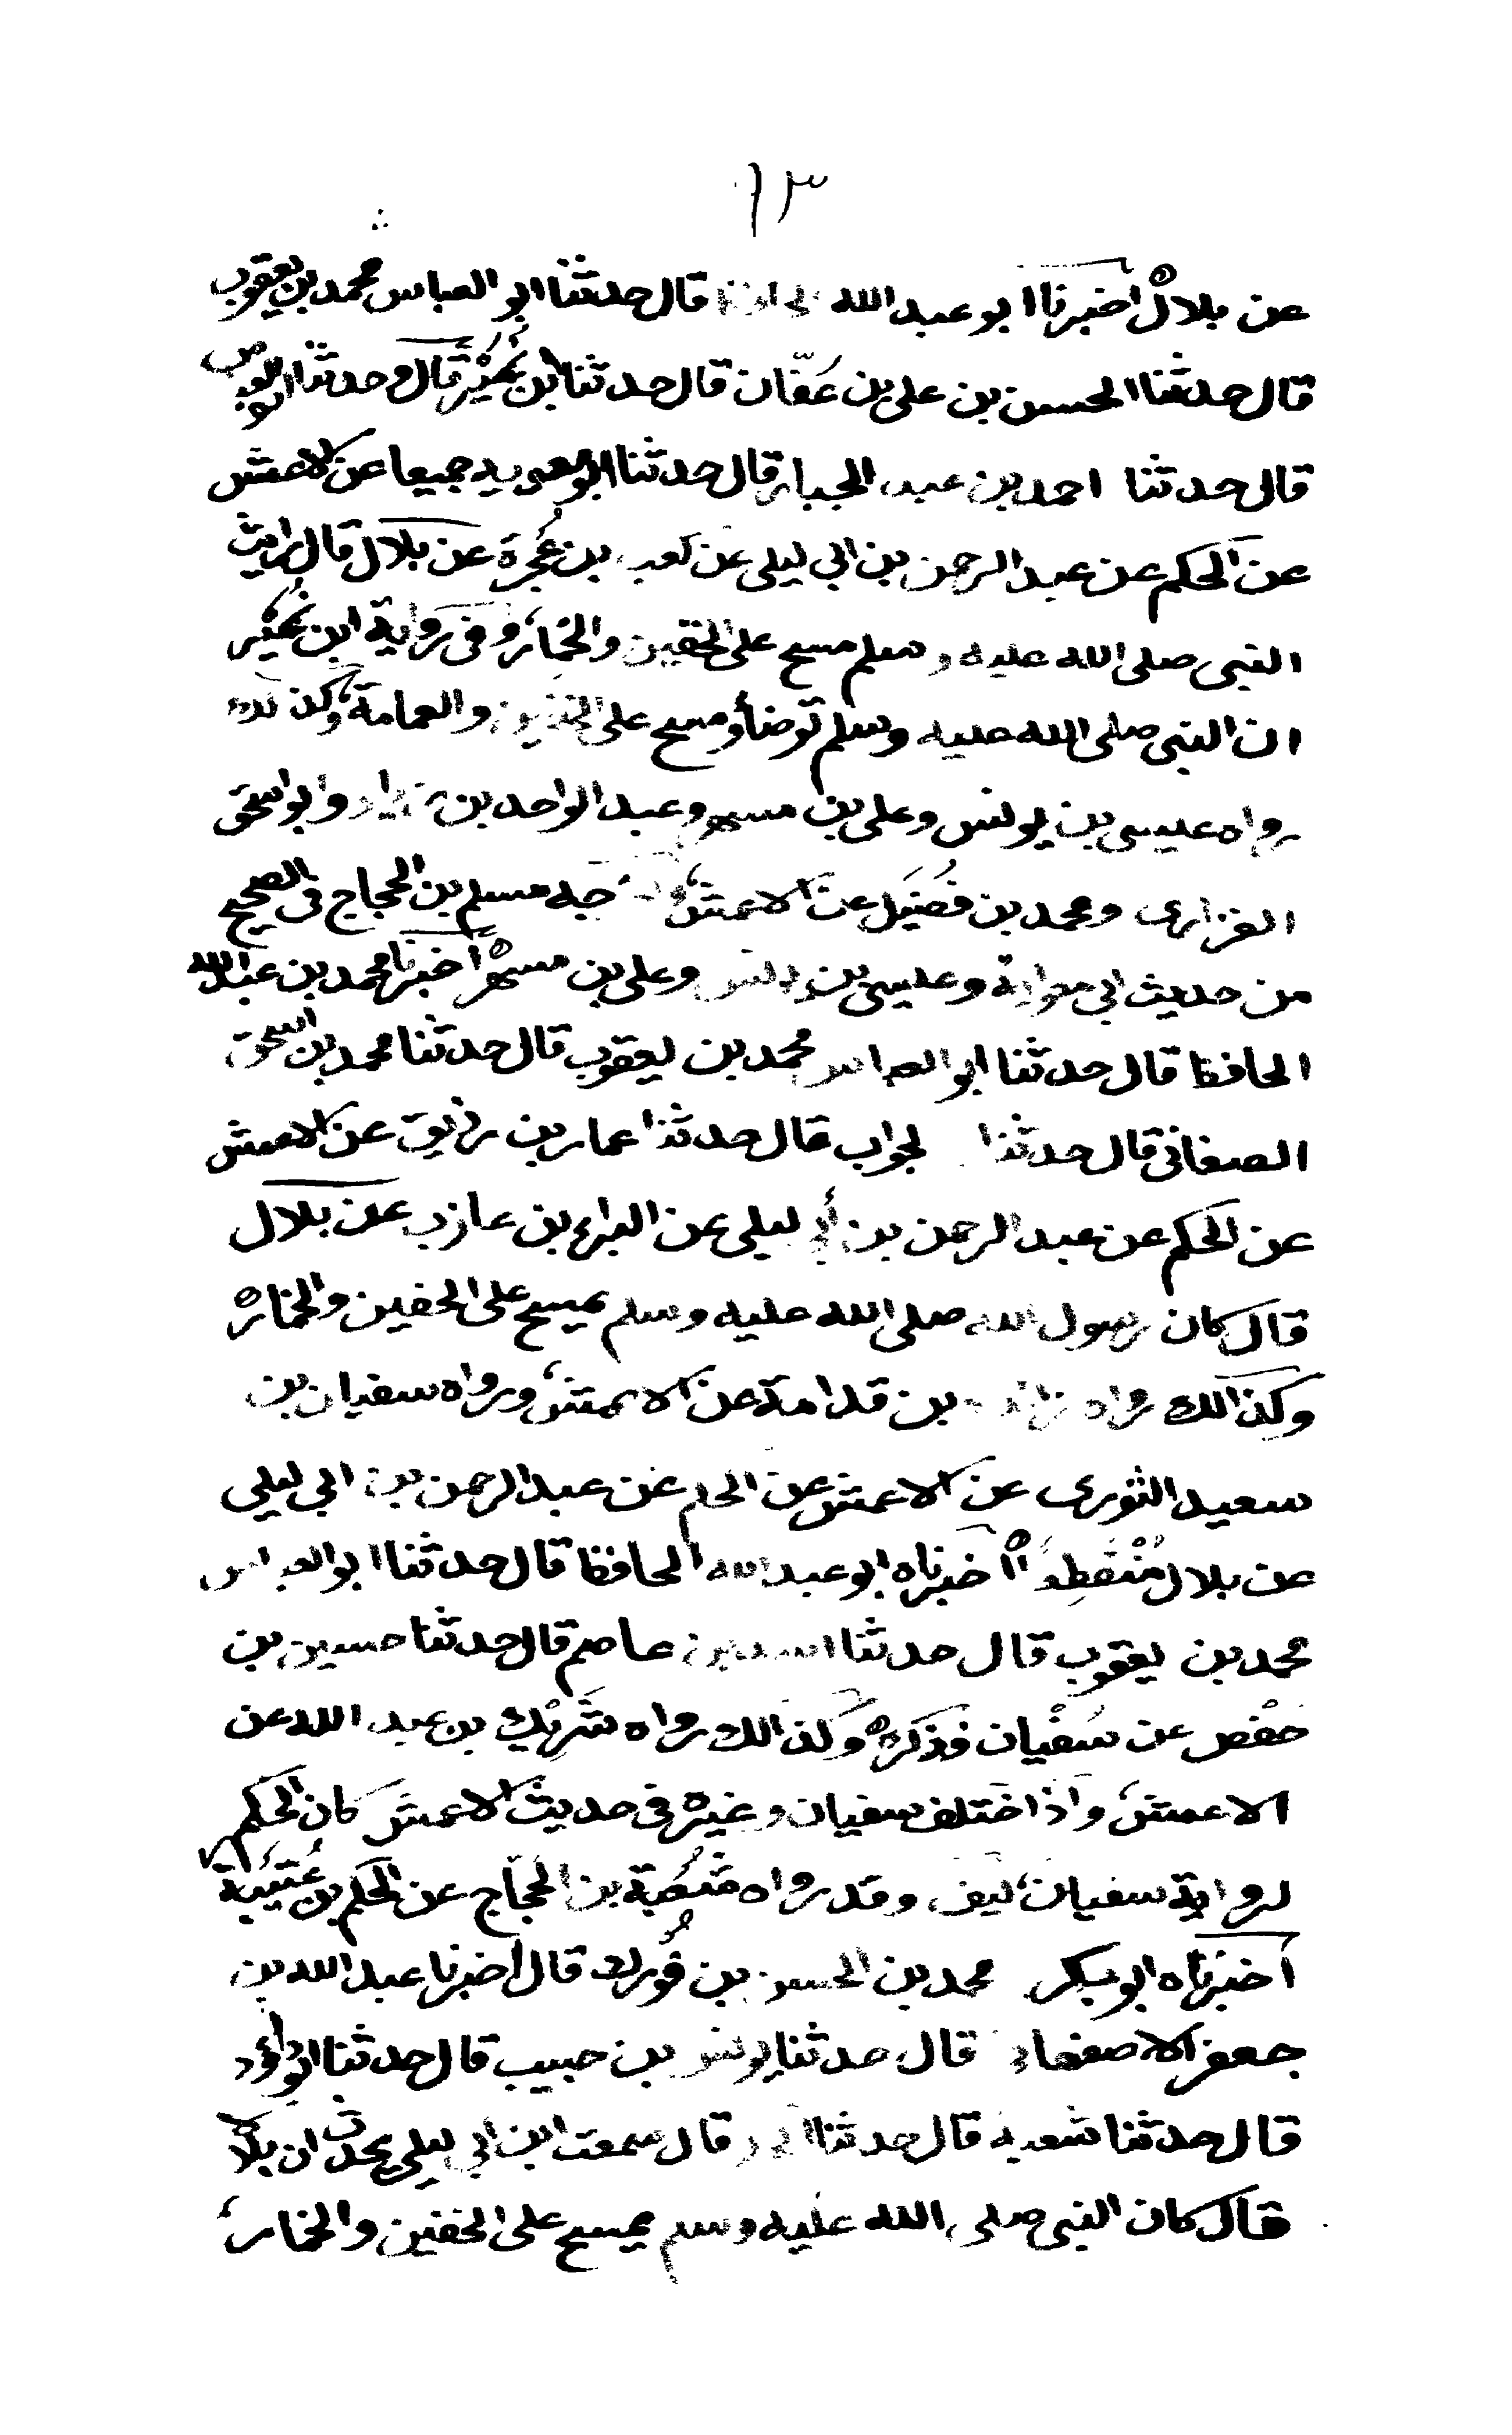 ٦٣
عن بلال اخبرنا ابو عبد الله الحافظ قال حدثنا ابو العباس محمد بن يعقوب
قال حدثنا الحسن بن على بن عَفّان قال حدثنا ابن نُمَيْر قال وحدثنا ابو العباس
قال حدثنا احمد بن عبد الجبار قال حدثنا ابو معويه جميعا عن الاعمش
عن الحكم عن عبد الرحمن بن ابي ليلى عن كعب بن عُجرة عن بلال قال رايت
النبى صلى الله عليه وسلم مسح على الخفين والخمار وفى رواية ابن نُمَيْر
ان النبى صلى الله عليه وسلم توضأ ومسح على الخفين والعمامة وكذلك
رواه عيسى بن يونس وعلى بن مسهر وعبد الواحد بن زياد وابو اسحق
الفزارى ومحمد بن فُضَيَل عن الاعمش مسلم بن الحجاج فى الصحيح
من حديث ابي معوية وعيسى بن يونس وعلى بن مسهر أخبرنا محمد بن عبد الله
الحافظ قال حدثنا ابو العباس محمد بن يعقوب قال حدثنا محمد بن اسحق
الصغانى قال حدثنا لجواب قال حدثنا عمار بن رزيق عن الاعمش
عن الحكم عن عبد الرحمن بن أبي ليلى عن البراء بن عازب عن بلال
قال كان رسول الله صلى الله عليه وسلم يمسح على الخفين والخمار
وكذالك رواه زائدة بن قدامة عن الاعمش ورواه سفيان بن
سعيد الثورى عن الاعمش عن الحكم عن عبد الرحمن بن ابي ليلى
عن بلال مُنْقَطِعًا أخبرناه ابو عبد الله الحافظ قال حدثنا ابو العباس
محمد بن يعقوب قال حدثنا اسيد بن عاصم قال حدثنا حسين بن
حَفْص عن سُفْيان فذكره وكذالك رواه شَرِيْك بن عبد الله عن
الاعمش واذا اختلف سفيان وغيره فى حديث الاعمش كان الحكم
لرواية سفيان كيف وقد رواه شُعْبة بن الحَجّاج عن الحكم بن عُتَيْبَة
أخبرناه ابو بكر محمد بن الحسن بن فُورك قال أخبرنا عبد الله بن
جعفر الاصفهانى قال حدثنا يونس بن حبيب قال حدثنا ابو داؤد
قال حدثنا شعبة قال حدثنا قال سمعت ابن ابي ليلى يحدث ان بلالا
قال كان النبى صلى الله عليه وسلم يمسح على الخفين والخمار